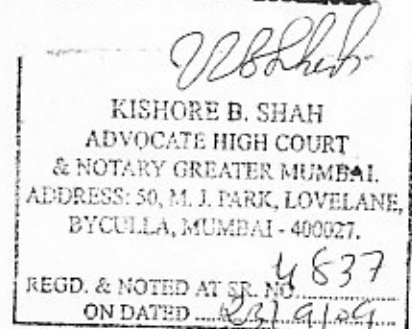 KISHORE B. SHAH
ADVOCATE HIGH COURT
& NOTARY GREATER MUMBAI.
ADDRESS: 50, M. J. PARK, LOVELANE,
BYCULLA, MUMBAI - 400027.
REGD. & NOTED AT SR. NO 4837
ON DATED ..... 23/9/09